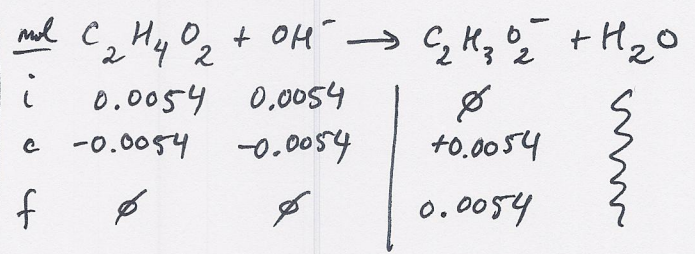 mol C₂H₄O₂ + OH⁻ → C₂H₃O₂⁻ + H₂O
i 0.0054 0.0054 ∅
c -0.0054 -0.0054 +0.0054
f ∅ ∅ 0.0054